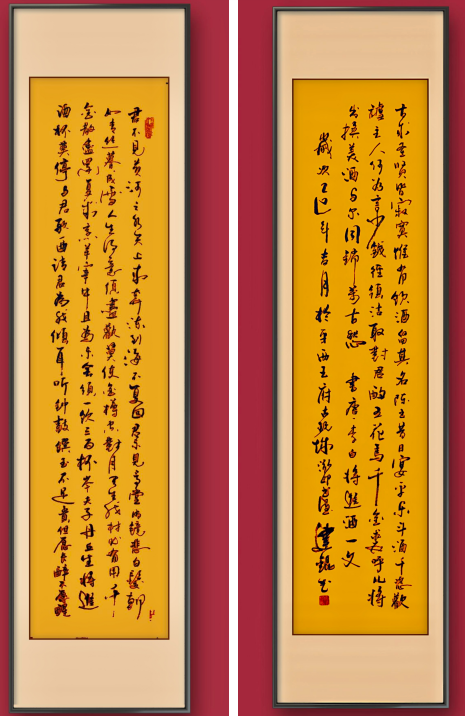 君不见黄河之水天上来奔流到海不复回君不见高堂明镜悲白发朝
如青丝暮成雪人生得意须尽欢莫使金樽空对月天生我材必有用千
金散尽还复来烹羊宰牛且为乐会须一饮三百杯岑夫子丹丘生将进
酒杯莫停与君歌一曲请君为我倾耳听钟鼓馔玉不足贵但愿长醉不愿醒
古来圣贤皆寂寞惟有饮者留其名陈王昔日宴平乐斗酒十千恣欢
谑主人何为言少钱径须沽取对君酌五花马千金裘呼儿将
出换美酒与尔同销万古愁 书唐李白将进酒一文
岁次乙巳年 月于 西王府